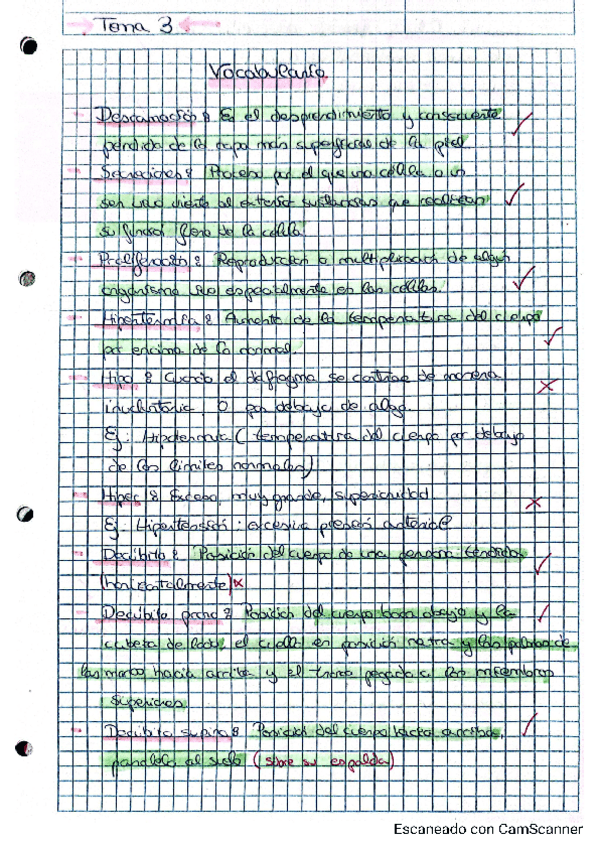 Tema 3
Vocabulario
- Descamación: Es el desprendimiento y consecuente
perdida de la capa más superficial de la piel.
- Secreciones: Proceso por el que una célula o un
ser vivo vierte al exterior sustancias que realizan
su función fuera de la célula.
- Proliferación: Reproducción o multiplicación de algún
organismo vivo especialmente en las células.
- Hipertermia: Aumento de la temperatura del cuerpo
por encima de lo normal.
- Hipo: Cuando el diafragma se contrae de manera
involuntaria. O por debajo de algo.
Ej: Hipotermia (temperatura del cuerpo por debajo
de los límites normales)
- Hiper: Exceso, muy grande, superioridad.
Ej: Hipertensión: excesiva presión arterial
- Decúbito: Posición del cuerpo de una persona tendida
(horizontalmente) x
- Decúbito prono: Posición del cuerpo boca abajo y la
cabeza de lado, el cuello en posición neutra y las palmas de
las manos hacia arriba y el tronco pegado a los miembros
superiores.
- Decúbito supino: Posición del cuerpo hacia arriba,
paralelo al suelo (sobre su espalda)
Escaneado con CamScanner